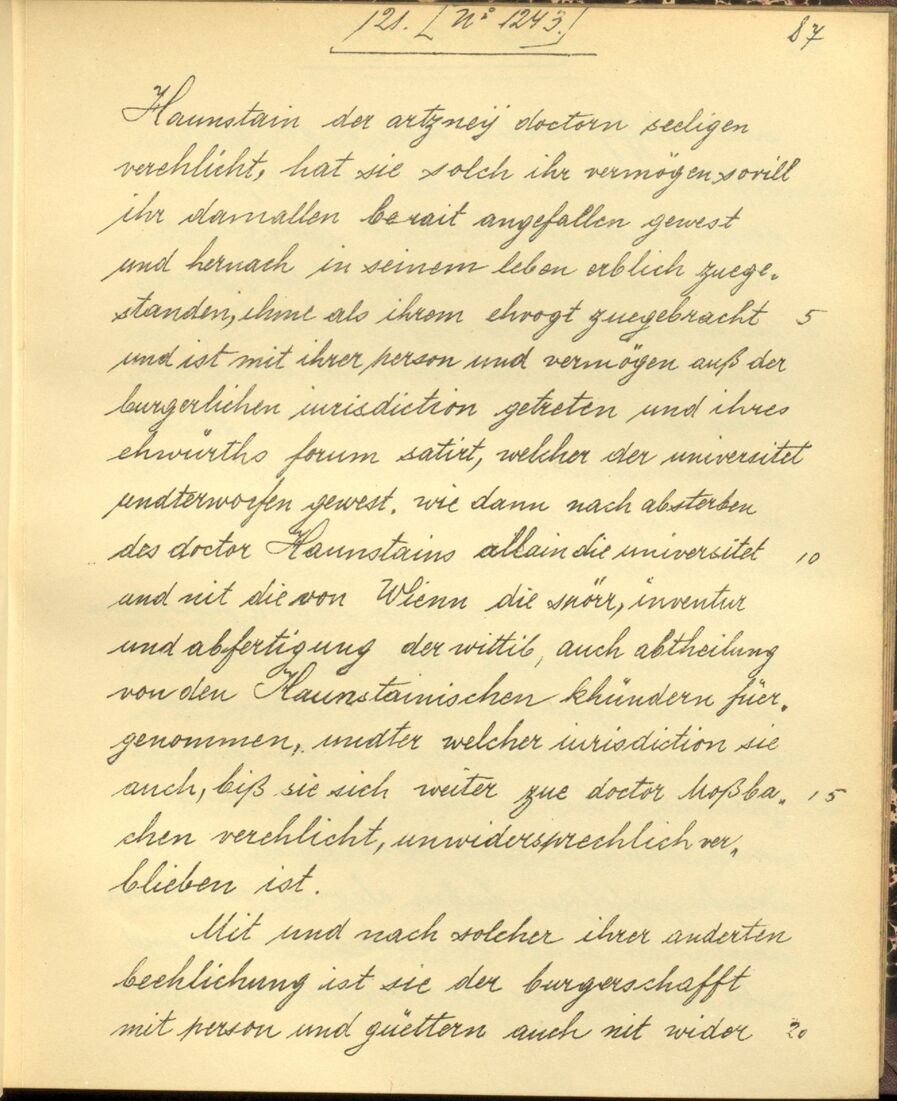 121. [Nº 1243.] 87
Haunstain der artzneÿ doctorn seeligen
verehlicht, hat sie solch ihr vermögen sovill
ihr damallen berait angefallen gewest
und hernach in seinem leben erblich zuege-
standen, ihme als ihrem ehvogt zuegebracht 5
und ist mit ihrer person und vermögen auß der
burgerlichen iurisdiction getreten und ihres
ehwürths forum satirt, welcher der universitet
undterworfen gewest. wie dann nach absterben
des doctor Haunstains allain die universitet 10
und nit die von Wienn die spörr, inventur
und abfertigung der wittib, auch abtheilung
von den Haunstainischen khündern füer-
genommen, undter welcher iurisdiction sie
auch, biß sie sich weiter zue doctor Moßba- 15
chen verehlicht, unwidersprechlich ver-
blieben ist.
Mit und nach solcher ihrer anderten
beehlichung ist sie der burgerschafft
mit person und güettern auch nit wider 20